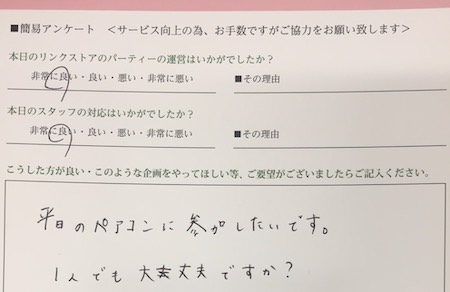 ■簡易アンケート ＜サービス向上の為、お手数ですがご協力をお願い致します＞
本日のリンクストアのパーティーの運営はいかがでしたか？
非常に良い・良い・悪い・非常に悪い ■その理由
本日のスタッフの対応はいかがでしたか？
非常に良い・良い・悪い・非常に悪い ■その理由
こうした方が良い・このような企画をやってほしい等、ご要望がございましたらご記入ください。
平日のペアコンに参加したいです。
1人でも大丈夫ですか？